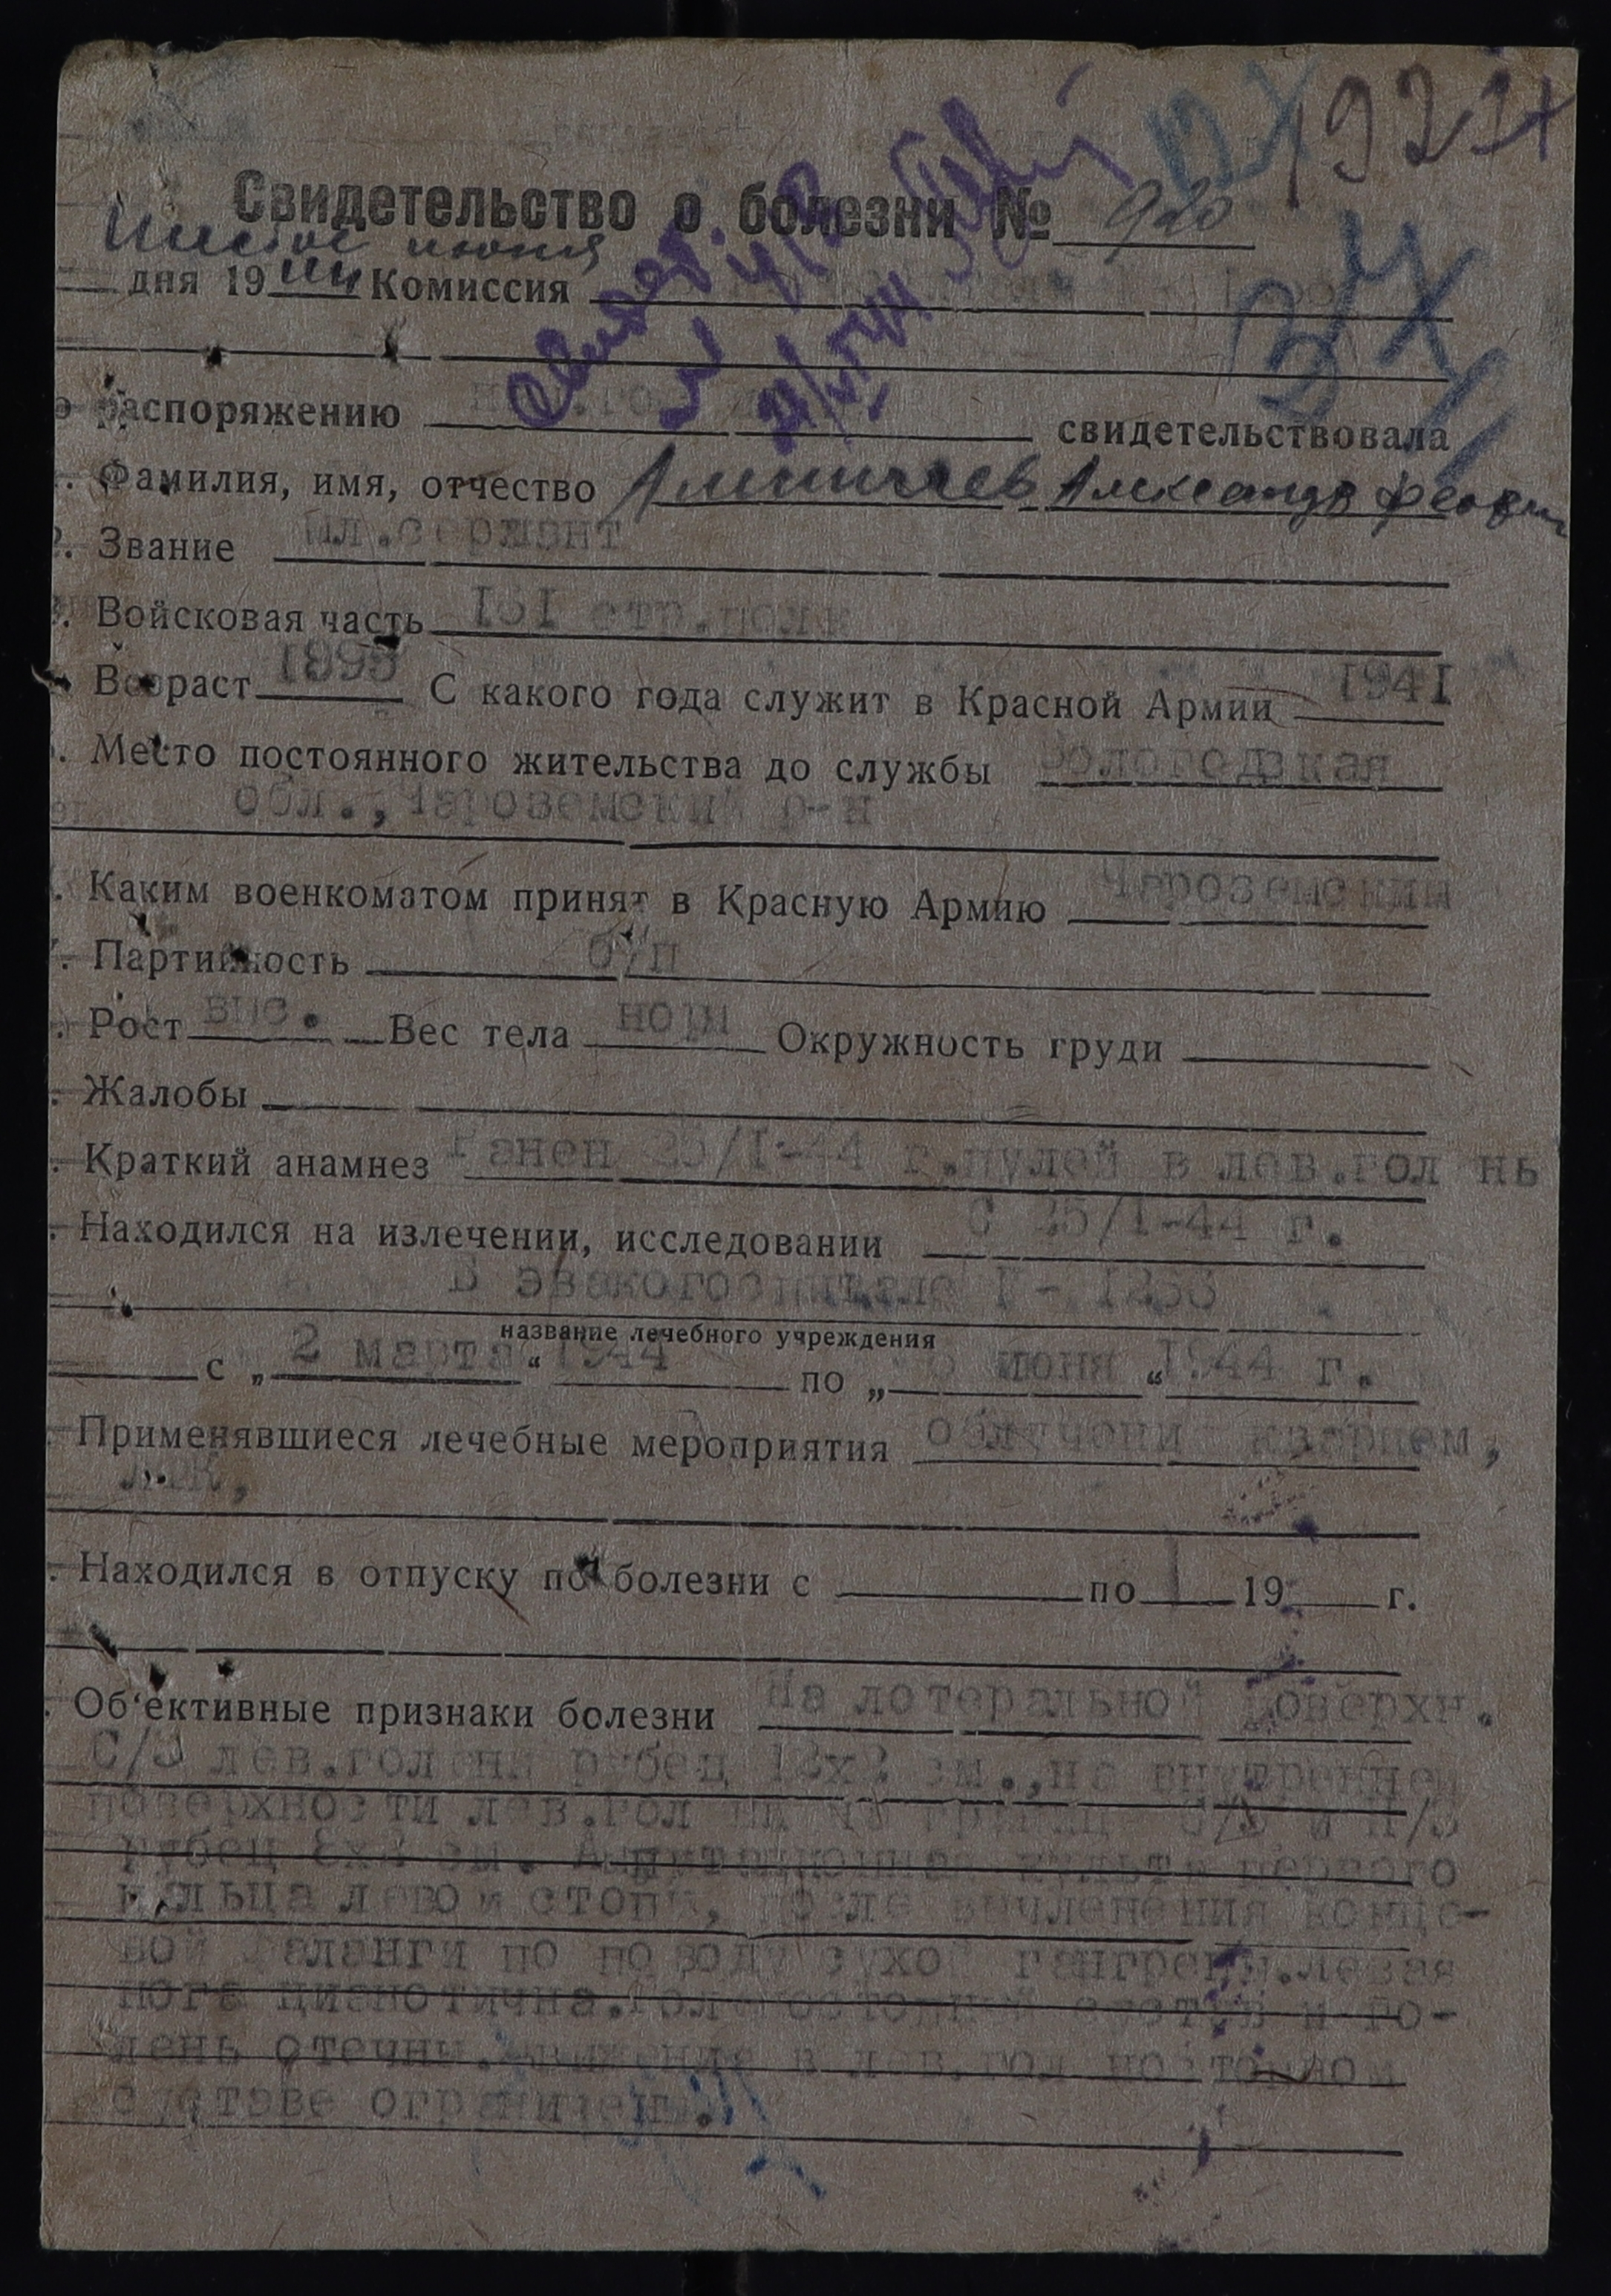 1921
Свидетельство о болезни № 920
Шестое июня
дня 1944 Комиссия
распоряжению свидетельствовала
Фамилия, имя, отчество Александр
Звание мл.сержант
Войсковая часть стр.полк
Возраст С какого года служит в Красной Армии 1941
Место постоянного жительства до службы Вологодская
обл., Чароземский р-н
Каким военкоматом принят в Красную Армию Чарозерским
Партийность б/п
Рост Вес тела Окружность груди
Жалобы
Краткий анамнез Ранен 25/I-44 г.пулей в лев.гол нь
Находился на излечении, исследовании С 25/I-44 г.
В эвакогоспитале
название лечебного учреждения
с „ 2 марта “ 1944 по „ 6 июня “ 1944 г.
Применявшиеся лечебные мероприятия облучени кварцем,
ЛФК,
Находился в отпуску по болезни с по 19 г.
Об‘ективные признаки болезни На лотеральной поверхн.
С/3 лев.голени рубец см.,на внутренней
поверхности лев.гол ни на границ с/3 и н/3
рубец см. Ампутационная культя первого
пальца левой стопы, после вычленения конце-
вой фаланги по поводу сухой гангрены.левая
нога цианотична.Голеностопный сустав и го-
лень отечны.Движения в лев.гол ностопном
суставе ограничены.